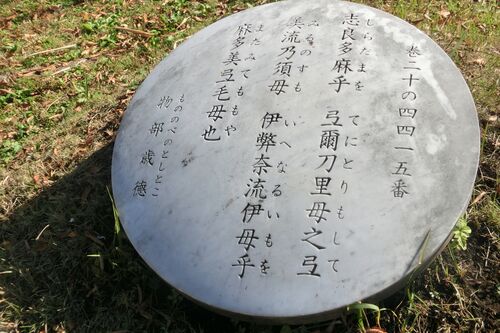 巻二十の四四一五番
しらたまを てにとりもして
志良多麻乎 弖爾刀里母之弖
みるのすも いへなるいもを
美流乃須母 伊弊奈流伊母乎
またみてももや
麻多美弖毛母也
もののべのとしとこ
物部歳徳